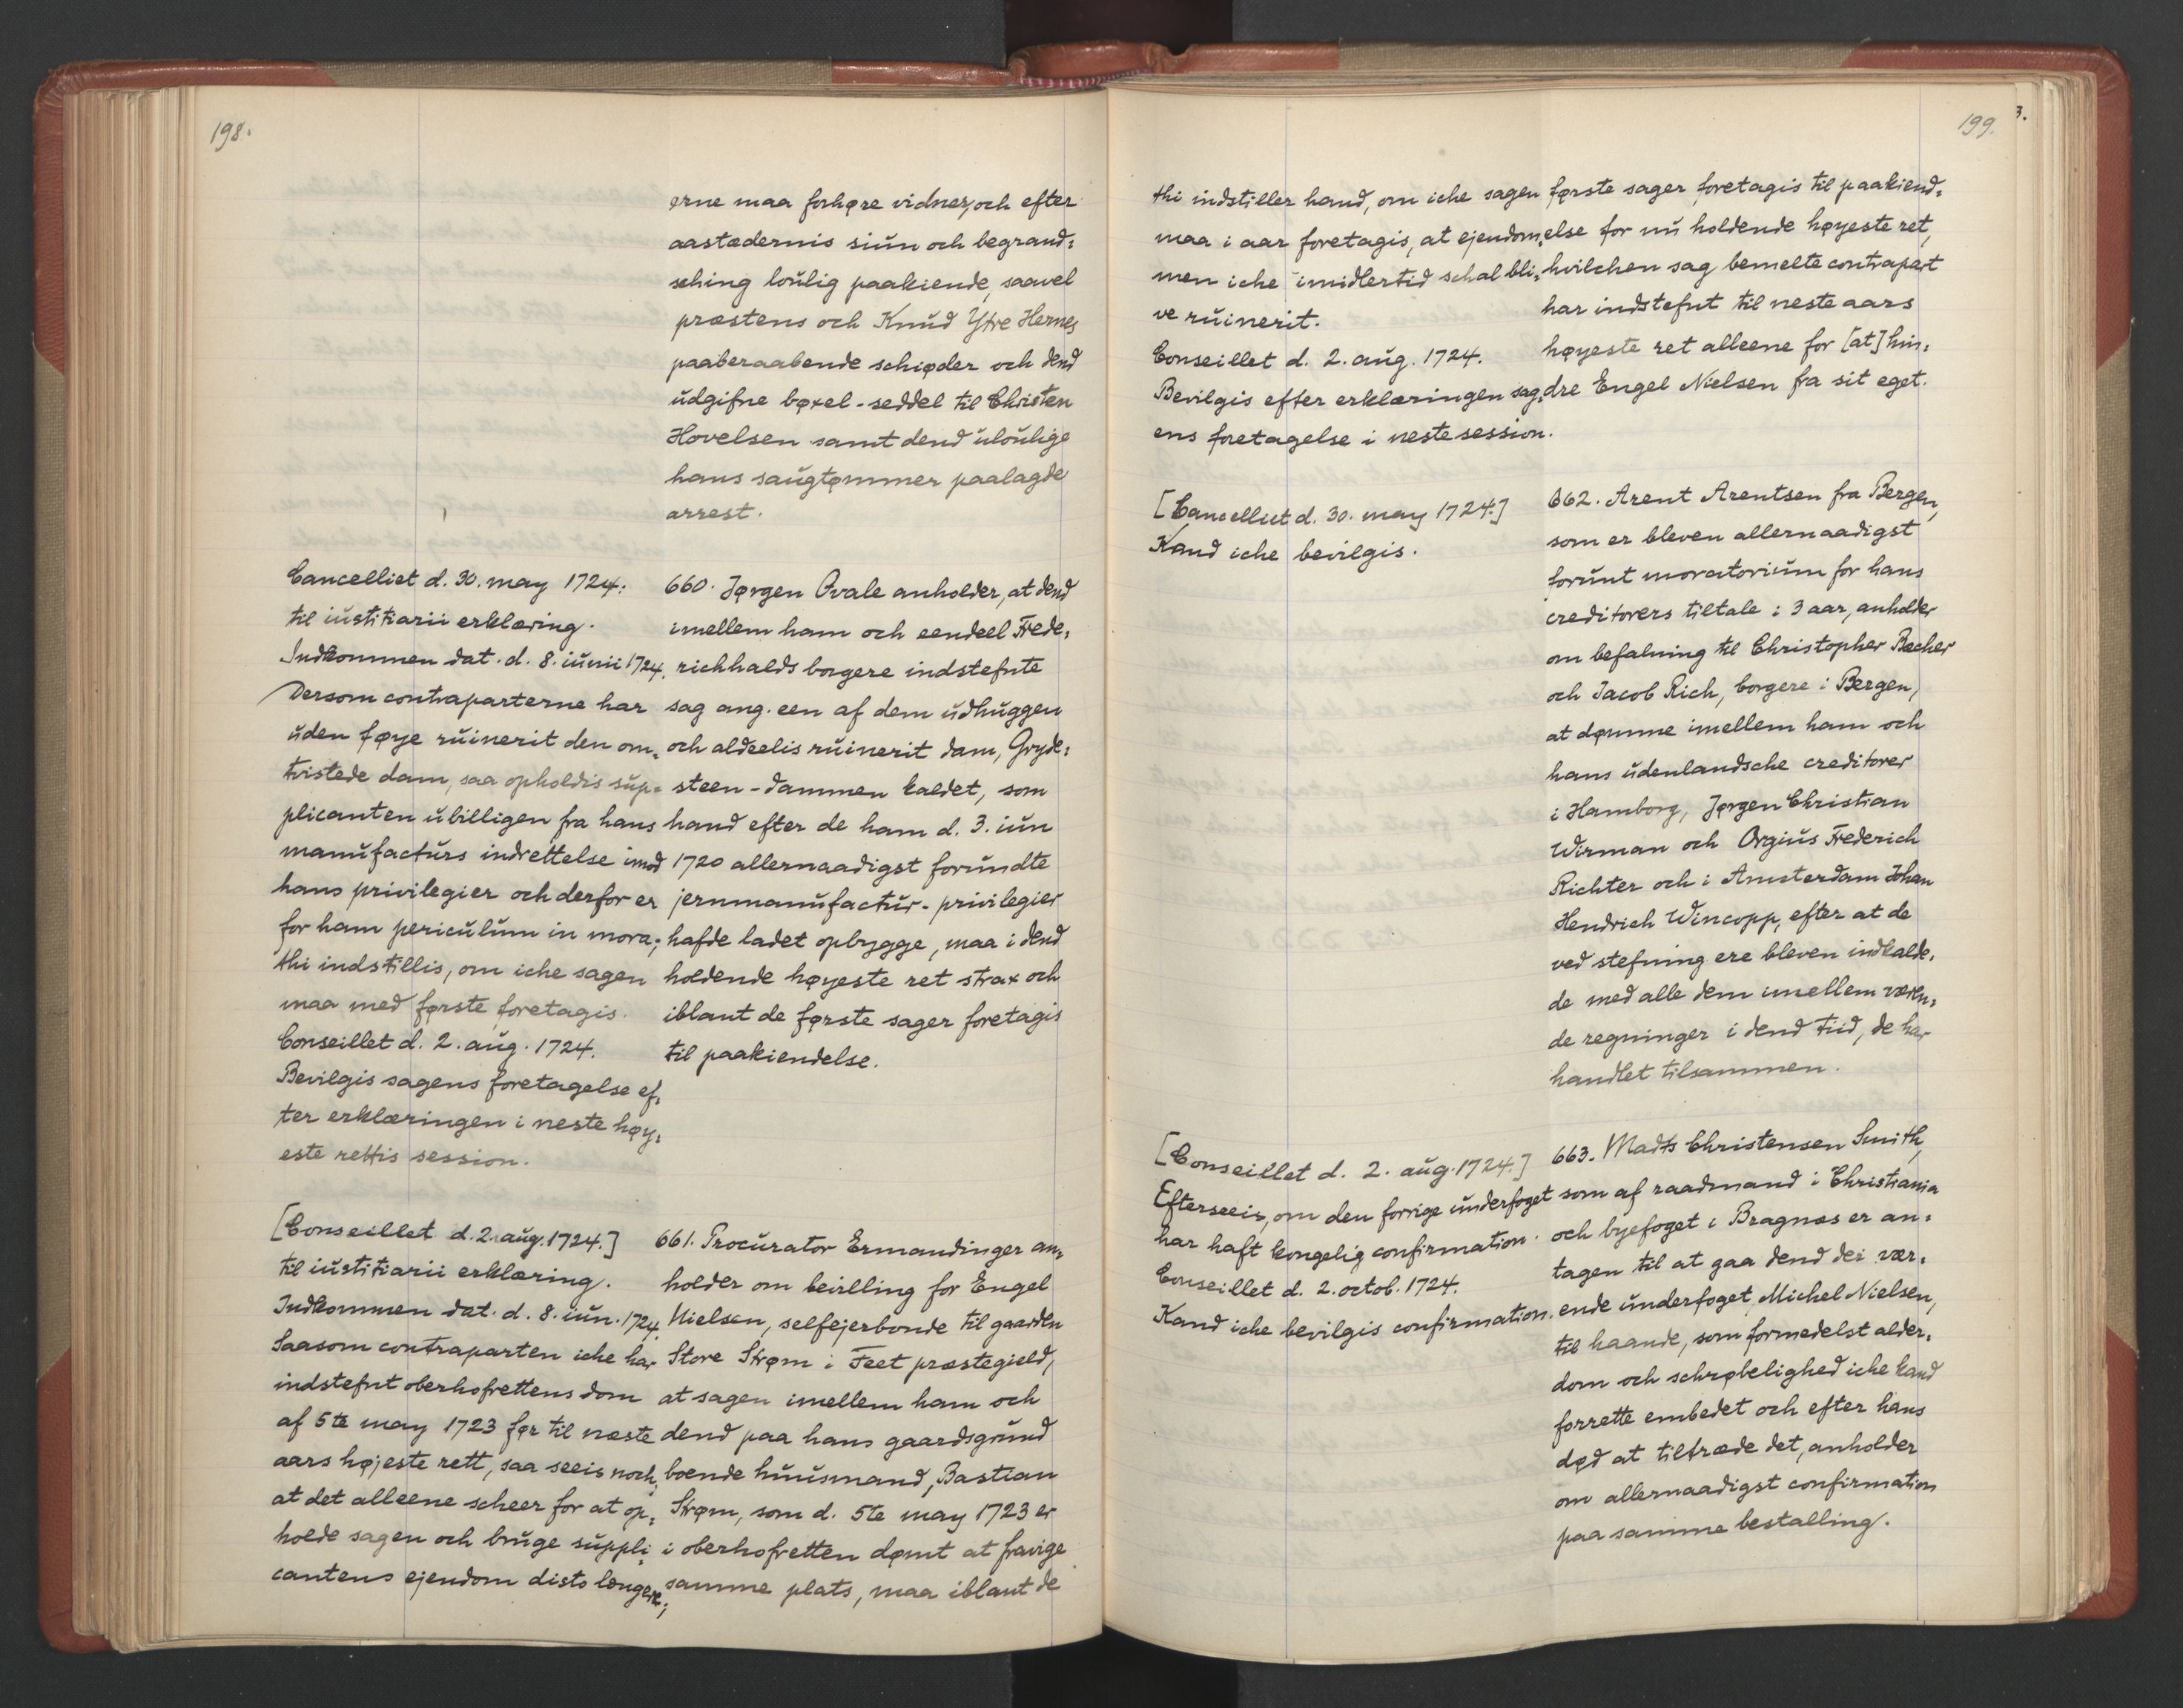 198.
erne maa forhøre vidner, och efter
aastædernis siün och begrand=
sching loŭlig paakiende, saavel
præstens och Knŭd Ytre Hernes
paaberaabende schiøder och dend
ŭdgifne bøxel-seddel til Christen
Hovelsen samt dend ŭloŭlige
hans saŭgtømmer paalagde
arrest.
Cancelliet d. 30. may 1724:
til iŭstitiarii erklæring.
Indkommen dat. d. 8. iŭnii 1724.
Dersom contraparterne har
ŭden føye rŭinerit den om=
tvistede dam, saa opholdis sŭp=
plicanten ŭbilligen fra hans
manŭfactŭrs indrettelse imod
hans privilegier och derfor er
for ham pericŭlŭm in mora;
thi indstillis, om iche sagen
maa med første foretagis.
Conseillet d. 2. aŭg. 1724.
Bevilgis sagens foretagelse ef=
ter erklæringen i neste høy=
este rettis session.
660. Jørgen Ovale anholder, at dend
imellem ham och eendeel Frede=
richhalds borgere indstefnte
sag ang. een af dem ŭdhŭggen
och aldeelis rŭinerit dam, Gryde=
steen-dammen kaldet, som
hand efter de ham d. 3. iŭn
1720 allernaadigst forŭndte
jernmanŭfactŭr-privilegier
hafde ladet opbygge, maa i dend
holdende høyeste ret strax och
iblant de første sager foretagis
til paakiendelse.
[Conseillet d. 2. aŭg. 1724.]
til iŭstitiarii erklæring.
Indkommen dat. d. 8. iŭn. 1724.
Saasom contraparten iche har
indstefnt oberhofrettens dom
af 5te may 1723 før til næste
aars højeste rett, saa seeis noch,
at det alleene scheer for at op=
holde sagen och brŭge sŭppli=
cantens ejendom disto længere;
661. Procŭrator Ermandinger an=
holder om bevilling for Engel
Nielsen, selfejerbonde til gaarden
Store Strøm i Feet præstegield,
at sagen imellem ham och
dend paa hans gaardsgrŭnd
boende hŭŭsmand, Bastian
Strøm, som d. 5te may 1723 er
i oberhofretten dømt at fravige
samme plats, maa iblant de
199.
3.
thi indstiller hand, om iche sagen
maa i aar foretagis, at ejendom=
men iche imidlertid schal bli=
ve rŭinerit.
Conseillet d. 2. aŭg. 1724.
Bevilgis efter erklæringen sag=
ens foretagelse i neste session.
første sager foretagis til paakiend=
else for nŭ holdende høyeste ret,
hvilchen sag bemelte contrapart
har indstefnt til neste aars
høyeste ret alleene for [at] hin=
dre Engel Nielsen fra sit eget.
[Cancelliet d. 30. may 1724.]
Kand iche bevilgis.
662. Arent Arentsen fra Bergen,
som er bleven allernaadigst
forŭnt moratoriŭm for hans
creditorers tiltale i 3 aar, anholder
om befalning til Christopher Becher
och Jacob Rich, borgere i Bergen,
at dømme imellem ham och
hans ŭdenlandsche creditorer
i Hamborg, Jørgen Christian
Wirman och Orgiŭs Frederich
Richter och i Amsterdam Johan
Hendrich Wincopp, efter at de
ved stefning ere bleven indkalde=
de med alle dem imellem væren=
de regninger i dend tiid, de har
handlet tilsammen.
[Conseillet d. 2. aŭg. 1724.]
Efterseeis, om den forrige ŭnderfoget
har haft kongelig confirmation.
Conseillet d. 2. octob. 1724.
Kand iche bevilgis confirmation.
663. Madts Christensen Smith,
som af raadmand i Christiania
och byefoget i Bragnæs er an=
tagen til at gaa dend dei vær=
ende ŭnderfoget, Michel Nielsen,
til haande, som formedelst alder=
dom och schrøbelighed iche kand
forrette embedet och efter hans
død at tiltræde det, anholder
om allernaadigst confirmation
paa samme bestalling.